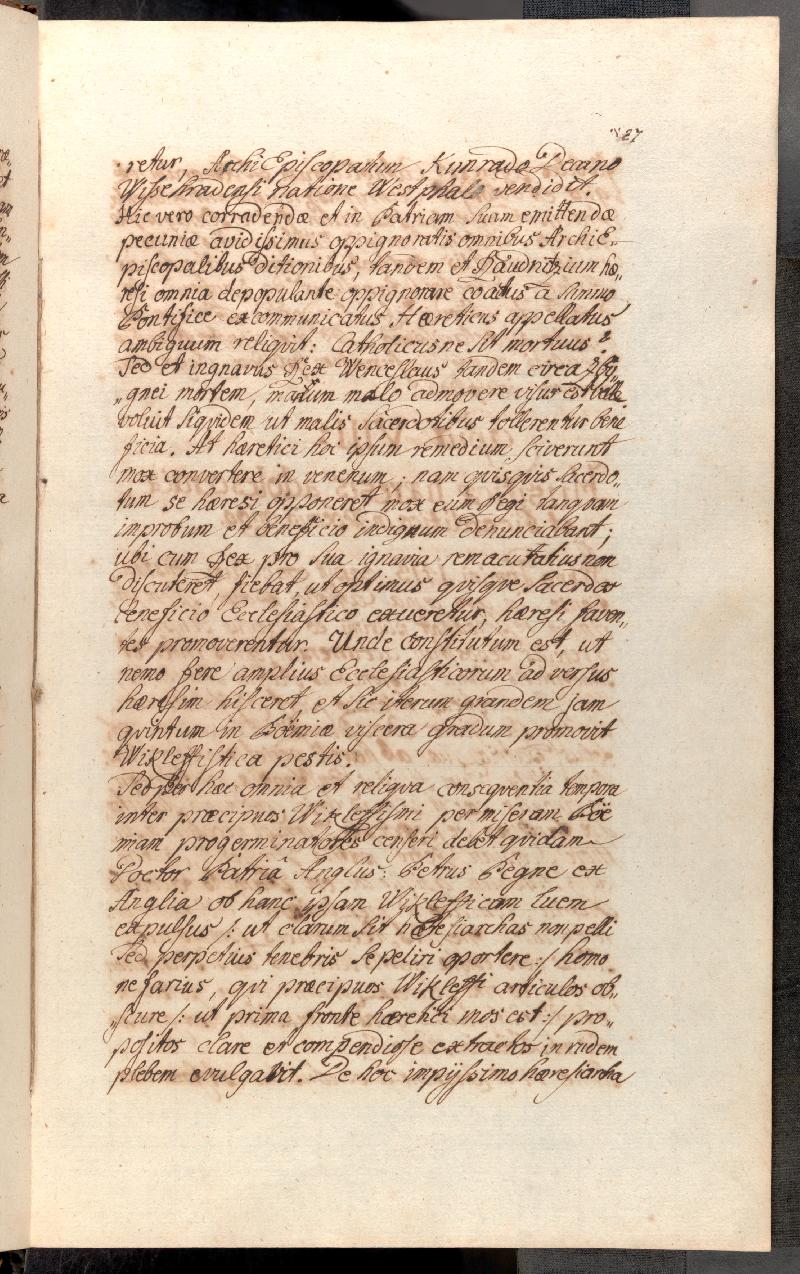 27
retur, ArchiEpiscopatum Kunrado Decano
Wissehradensi natione Westphalo vendidit.
Hic vero corradendæ et in Patriam suam emittendæ
pecuniæ avidissimus oppignoratis omnibus ArchiE„
piscopalibus Ditionibus, tandem et Raudnitzium hæ„
resi omnia depopulante oppignorare coactus a summo
Pontifice excommunicatus Hæreticus appellatus
ambiguum reliqvit: Catholicusne sit mortuus?
Sed et ingnavus Rex Wenceslaus tandem circa
„gnei mortem, malum malo admovere visus est
voluit siqvidem ut malis Sacerdotibus tollerentur bene
ficia. At hæretici hoc ipsum remedium sciverunt
mox convertere in venenum; nam qvisqvis Sacerdo„
tum se hæresi opponeret mox eum Regi tanqvam
improbum et beneficio indignum denunciabant;
ubi cum Rex pro sua ignavia rem acutatius non
discuteret, fiebat, ut optimus qvisqve Sacerdos
beneficio Ecclesiastico exueretur, hæresi faven„
tes promoverentur. Unde constitutum est, ut
nemo fere amplius Ecclesiasticorum adversus
hæresim hisceret, et sic iterum grandem jam
qvintum in Boëmiæ viscera gradum promovit
Wikleffistica pestis.
Sed per hæc omnia et reliqva conseqventia tempora
inter præcipuos Wikleffismi per miseram Boë
miam progerminatores censeri debet qvidam
Doctor Patriâ Anglus: Petrus Pegne ex
Anglia ob hanc ipsam Wikleffticam luem
expulsus /: ut clarum sit hæresiarchas non pelli
sed perpetuis tenebris sepeliri oportere :/ homo
nefarius, qvi præcipuos Wikleffi articulos ob„
„scure /: ut prima fronte hæretici mos est :/ pro„
positos clare et compendiose extractos in rudem
plebem evulgavit. De hoc impijssimo hæresiarcha